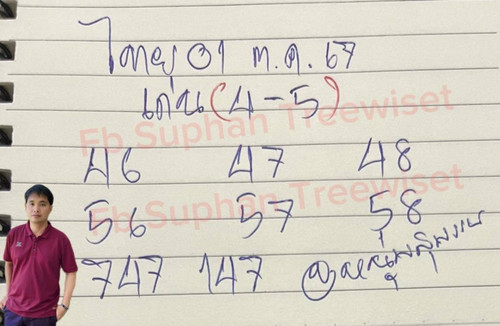 ไทย 01 ต.ค. 67
เด่น (4-5)
Fb Suphan Treewiset
46 47 48
Fb Suphan Treewiset
56 57 58
747 147